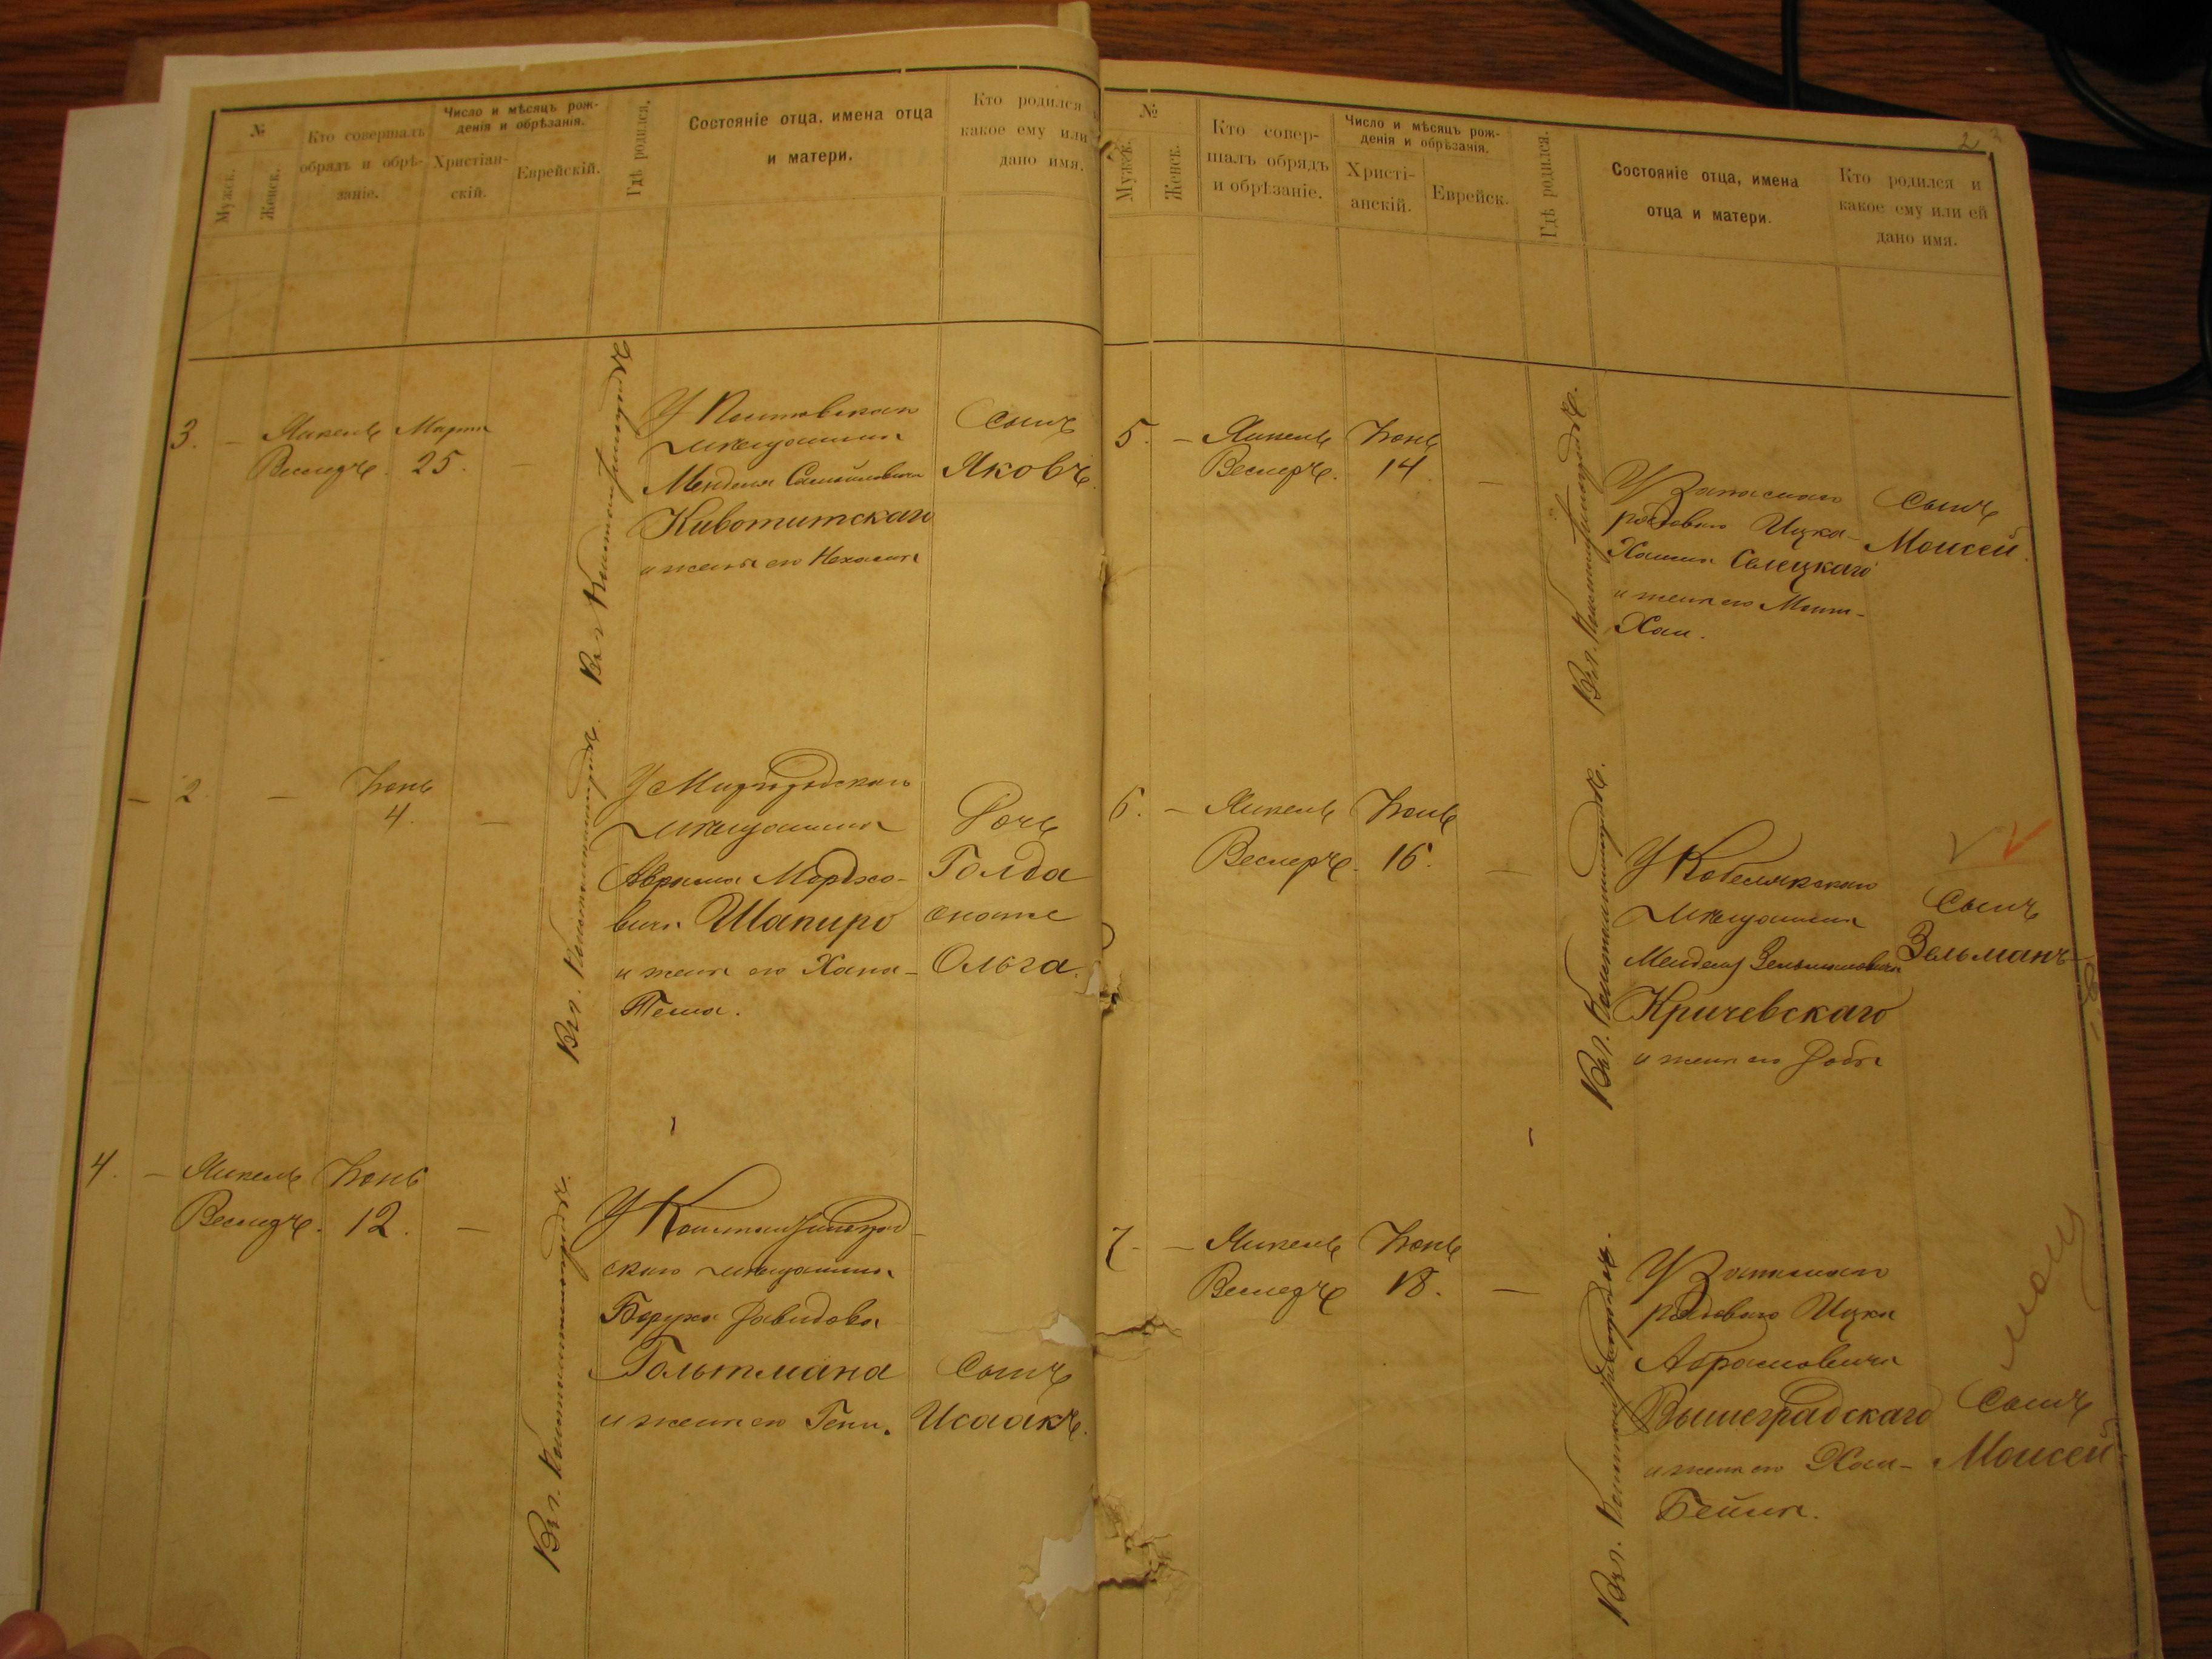 №
Мужск.
Женск.
Кто совершалъ
обрядъ и обрѣ-
заніе.
Число и мѣсяцъ рож-
денія и обрѣзанія.
Христіан-
скій.
Еврейскій.
Гдѣ родился.
Состояніе отца, имена отца
и матери.
Кто родился
какое ему или
дано имя.
3. –
Янкель
Веснеръ.
Мартъ
25.
Въ г. Константиноградѣ
мѣщанина
Менделя
Кивотитскаго
и жены его Нехама
Сынъ
Яковъ.
– 2 –
Іюнь
4.
Въ г. Константиноградѣ.
мѣщанина
Абрама Мордхо-
вича Шапиро
и жены его Хана-
Теша.
Дочь
Голда
она же
Ольга.
4. –
Янкель
Веснеръ.
Іюнь
12.
Въ г. Константиноградѣ.
У Константиноград-
скаго мѣщанина
Боруха Давидова
Гольтмана
и жены его Гени.
Сынъ
Исаакъ.
2
№
Мужск.
Женск.
Кто совер-
шалъ обрядъ
и обрѣзаніе.
Число и мѣсяцъ рож-
денія и обрѣзанія.
Христі-
анскій.
Еврейск.
Гдѣ родился.
Состояніе отца, имена
отца и матери.
Кто родился и
какое ему или ей
дано имя.
5. –
Янкель
Веснеръ.
Іюнь
14
Въ г. Константиноградѣ.
У Запаснаго
рядового Ицка-
Хаима Селецкаго
и жены его
Хаи.
Сынъ
Моисей.
6. –
Янкель
Веснеръ.
Іюнь
16.
Въ г. Константиноградѣ.
У Кобелякскаго
мѣщанина
Менделя Зельмановича
Кричевскаго
и жены его Добы
Сынъ
Зельманъ
7. –
Янкель
Веснеръ
Іюнь
18.
Въ г. Константиноградѣ.
У Запаснаго
рядового Ицки
Абрамовича
Вышеградскаго
и жены его Хаи-
Бейли.
Сынъ
Моисей